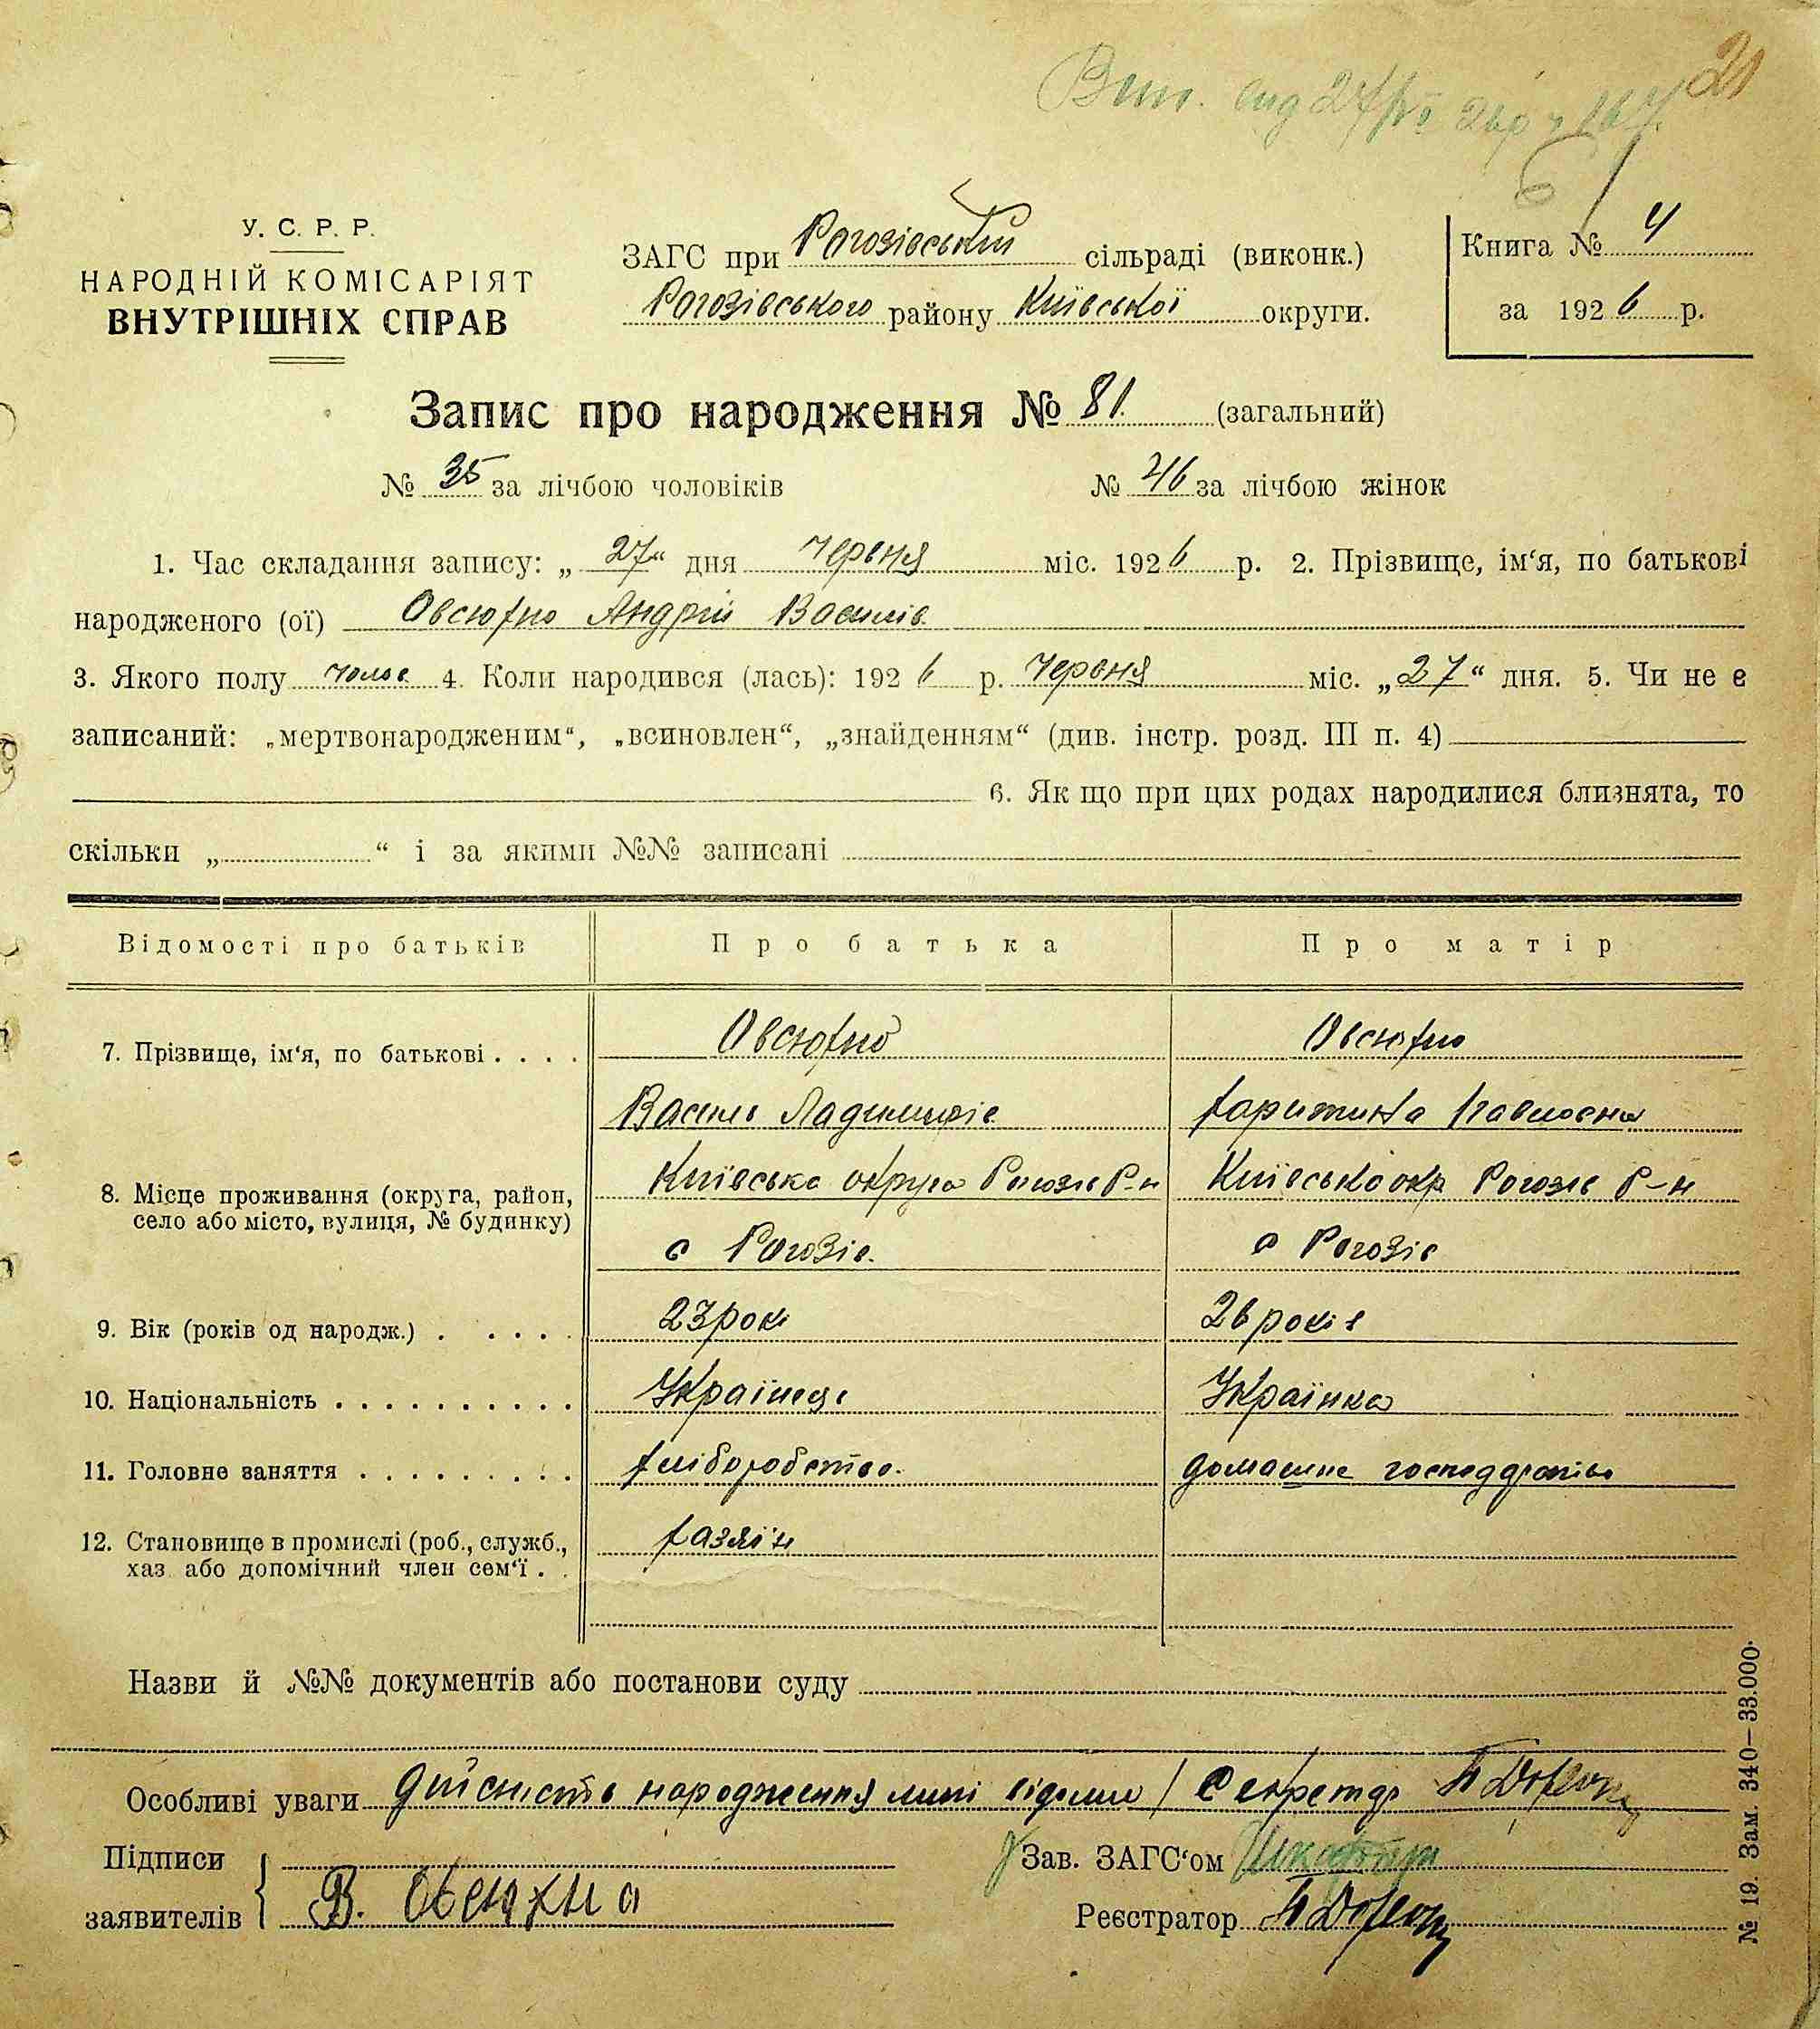 21
У. С. Р. Р.
НАРОДНІЙ КОМІСАРІЯТ
ВНУТРІШНІХ СПРАВ
ЗАГС при Рогозівській сільраді (виконк.)
Рогозівського району Київської округи.
Книга № 4
за 1926 р.
Запис про народження № 81. (загальний)
№ 35 за лічбою чоловіків № 46 за лічбою жінок
1. Час складання запису: „ 27 “ дня Червня міс. 1926 р. 2. Прізвище, ім‘я, по батькові
народженого (ої) Овсюхно Андрій Василів
3. Якого полу чолов. 4. Коли народився (лась): 1926 р. Червня міс. „ 27 “ дня. 5. Чи не є
записаний: „мертвонародженим“, „всиновлен“, „знайденням“ (див. інстр. розд. III п. 4)
6. Як що при цих родах народилися близнята, то
скільки „ “ і за якими №№ записані
Відомості про батьків Про батька Про матір
7. Прізвище, ім‘я, по батькові . . . . Овсюхно Овсюхно
Василь Ладимирів Харитина Павловна
8. Місце проживання (округа, район, село або місто, вулиця, № будинку) Київська округа Рогозів Р-н Київська окр Рогозів Р-н
с Рогозів. с Рогозів
9. Вік (років од народж.) . . . . . 23 рок 26 років
10. Національність . . . . . . . . . . Українець Українка
11. Головне заняття . . . . . . . . . хліборобство. домашне господарство
12. Становище в промислі (роб., служб., хазяїн
хаз. або допомічний член сем‘ї . .
Назви й №№ документів або постанови суду
Особливі уваги Дійсність народження мині відомий / Секретар
Підписи
заявителів В. Овсюхно
Зав. ЗАГС‘ом
Реєстратор
№ 19. Зам. 340—33.000.